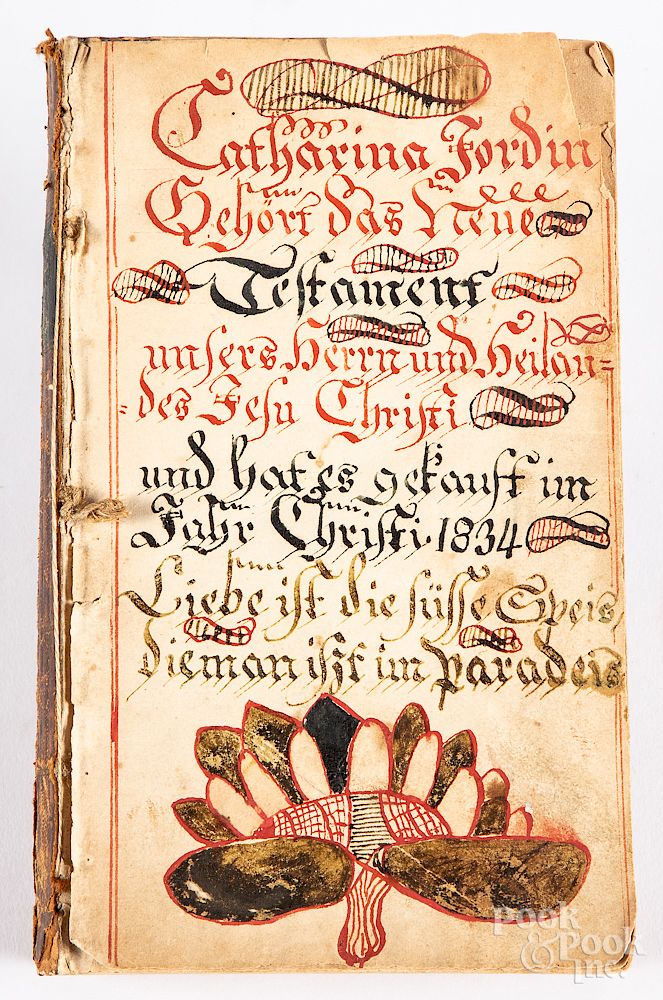 Catharina Jordin
Gehört das Neue
Testament
unsers Herrn und Heilan=
=des Jesu Christi
und hat es gekauft im
Jahr Christi. 1834
Liebe ist die süsse Speis
die man iszt im paradeis
Pook
& Pook
Inc.